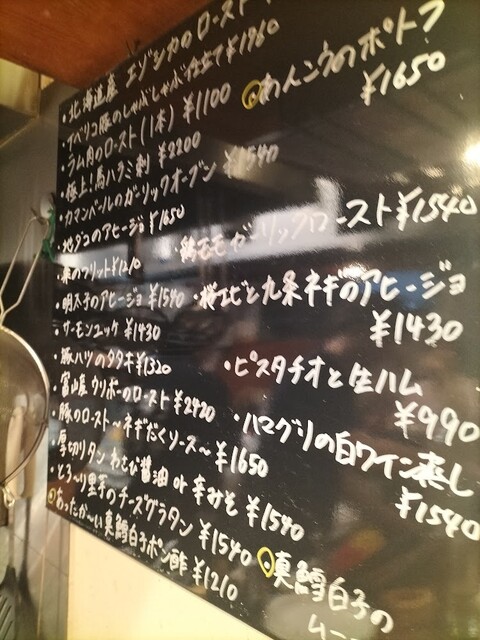 ・北海道産 エゾシカのロースト
・イベリコ豚のしゃぶしゃぶ仕立て ¥1760
・ラム肉のロースト(1本) ¥1100
・極上!馬ハラミ刺 ¥2200
・カマンベールのガーリックオーブン ¥1540
・地ダコのアヒージョ ¥1650
のフリット ¥1210
・明太子のアヒージョ ¥1540
・サーモンユッケ ¥1430
・豚ハツのタタキ ¥1320
・富山産ウリボーのロースト ¥2420
・豚のロースト〜ネギだくソース〜 ¥1650
・厚切りタン わさび醤油 or 辛みそ ¥1540
・とろ〜り里芋のチーズグラタン ¥1540
あったか〜い真鱈白子ポン酢 ¥1210
あんこうのポトフ
¥1650
・鶏モモガーリックロースト ¥1540
・桜エビと九条ネギのアヒージョ
¥1430
・ピスタチオと生ハム
¥990
・ハマグリの白ワイン蒸し
¥1540
真鱈白子の
ム